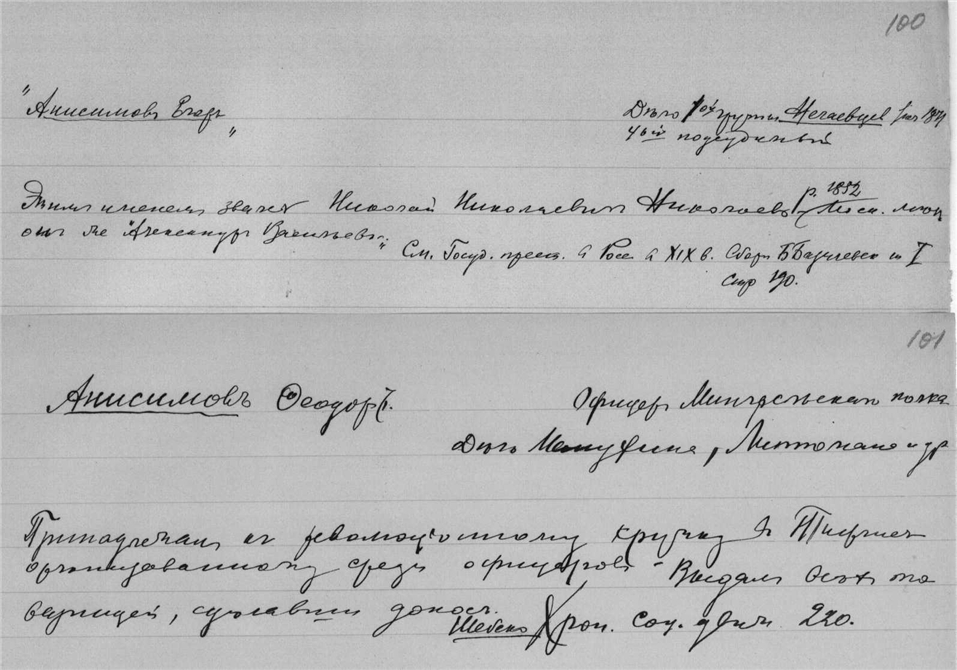 100
"Анисимовъ Егоръ"
Дѣло 1ой группы Нечаевцев 1871
4ый подсудимый
Этим именемъ звался Николай Николаевичъ Николаевъ р. 1852
он же "Александръ Васильевъ".
См. Госуд. прест. в Росс в XIX в. Сборн. Б Базилевск т I
стр 190.
101
Анисимовъ Ѳеодоръ.
Офицеръ Мингрельскаго полка
Дѣло и др
Принадлежалъ къ революціонному кружку въ Тифлисе
организованному среди офицеровъ - Выдалъ всѣх то
варищей, сделавши доносъ.
Шебеко Хрон. соц. движ. 220.